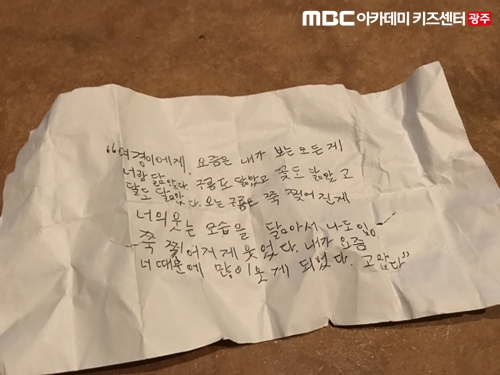 MBC 아카데미 키즈센터 광주
"여경이에게. 요즘은 내가 보는 모든게
너랑 닮았다. 구름도 닮았고 꽃도 닮았고
달도 닮았다. 오는 구름은 쭉 찢어진게
너의 웃는 모습을 닮아서 나도 입
쭉 찢어지게 웃었다. 내가 요즘
너 때문에 많이 웃게 되었다. 고맙다"